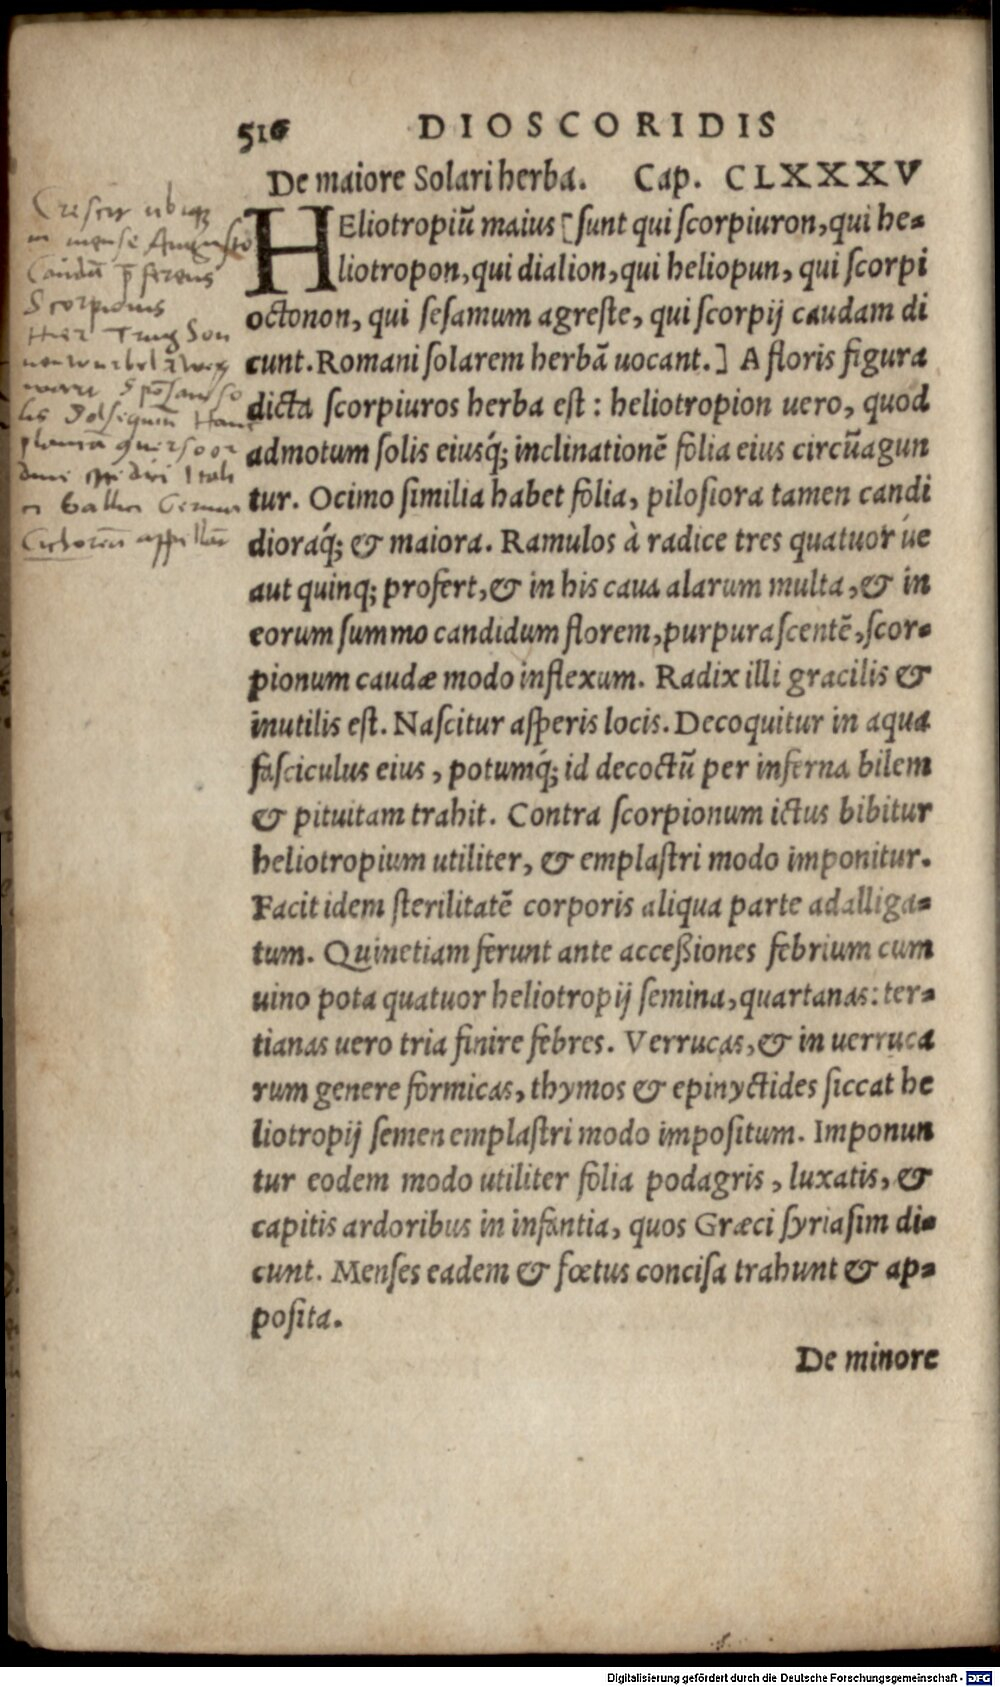 516 DIOSCORIDIS
De maiore Solari herba. Cap. CLXXXV
HEliotropiũ maius [sunt qui scorpiuron, qui he-
liotropon, qui dialion, qui heliopun, qui scorpi
octonon, qui sesamum agreste, qui scorpij caudam di
cunt. Romani solarem herbã uocant.] A floris figura
dicta scorpiuros herba est: heliotropion uero, quod
admotum solis eiusq́; inclinationẽ folia eius circũagun
tur. Ocimo similia habet folia, pilosiora tamen candi
dioraq́; & maiora. Ramulos à radice tres quatuor úe
aut quinq; profert, & in his caua alarum multa, & in
eorum summo candidum florem, purpurascentẽ, scor-
pionum caudæ modo inflexum. Radix illi gracilis &
inutilis est. Nascitur asperis locis. Decoquitur in aqua
fasciculus eius, potumq́; id decoctũ per inferna bilem
& pituitam trahit. Contra scorpionum ictus bibitur
heliotropium utiliter, & emplastri modo imponitur.
Facit idem sterilitatẽ corporis aliqua parte adalliga-
tum. Quinetiam ferunt ante acceßiones febrium cum
uino pota quatuor heliotropij semina, quartanas: ter-
tianas uero tria finire febres. Verrucas, & in uerruca
rum genere formicas, thymos & epinyctides siccat he
liotropij semen emplastri modo impositum. Imponun
tur eodem modo utiliter folia podagris, luxatis, &
capitis ardoribus in infantia, quos Græci syriasim di-
cunt. Menses eadem & fœtus concisa trahunt & ap-
posita.
De minore
Crescit ubiq;
in mense Augusto
Caudã
Scorpionis
Digitalisierung gefördert durch die Deutsche Forschungsgemeinschaft - DFG